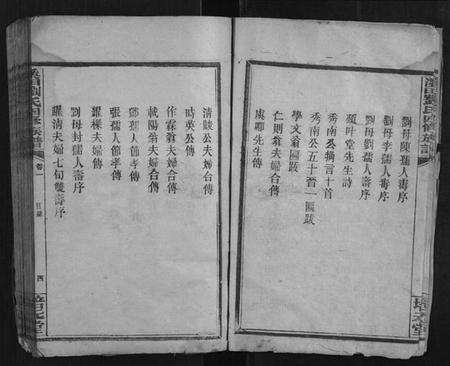 劉母陳孺人壽序
劉母李孺人壽序
劉母劉孺人壽序
碩叶堂先生詩
秀南公摘言十首
秀南公五十序 跋
學文翁匾跋
仁則翁夫婦合傳
虞卿先生傳
清畯公夫婦合傳
時英公傳
作霖翁夫婦合傳
載陽翁夫婦合傳
鄧孺人節孝傳
張孺人節孝傳
耀樑夫婦傳
劉母封孺人壽序
躍清夫婦七旬雙壽序
劉氏四修族譜
卷一
目錄
四